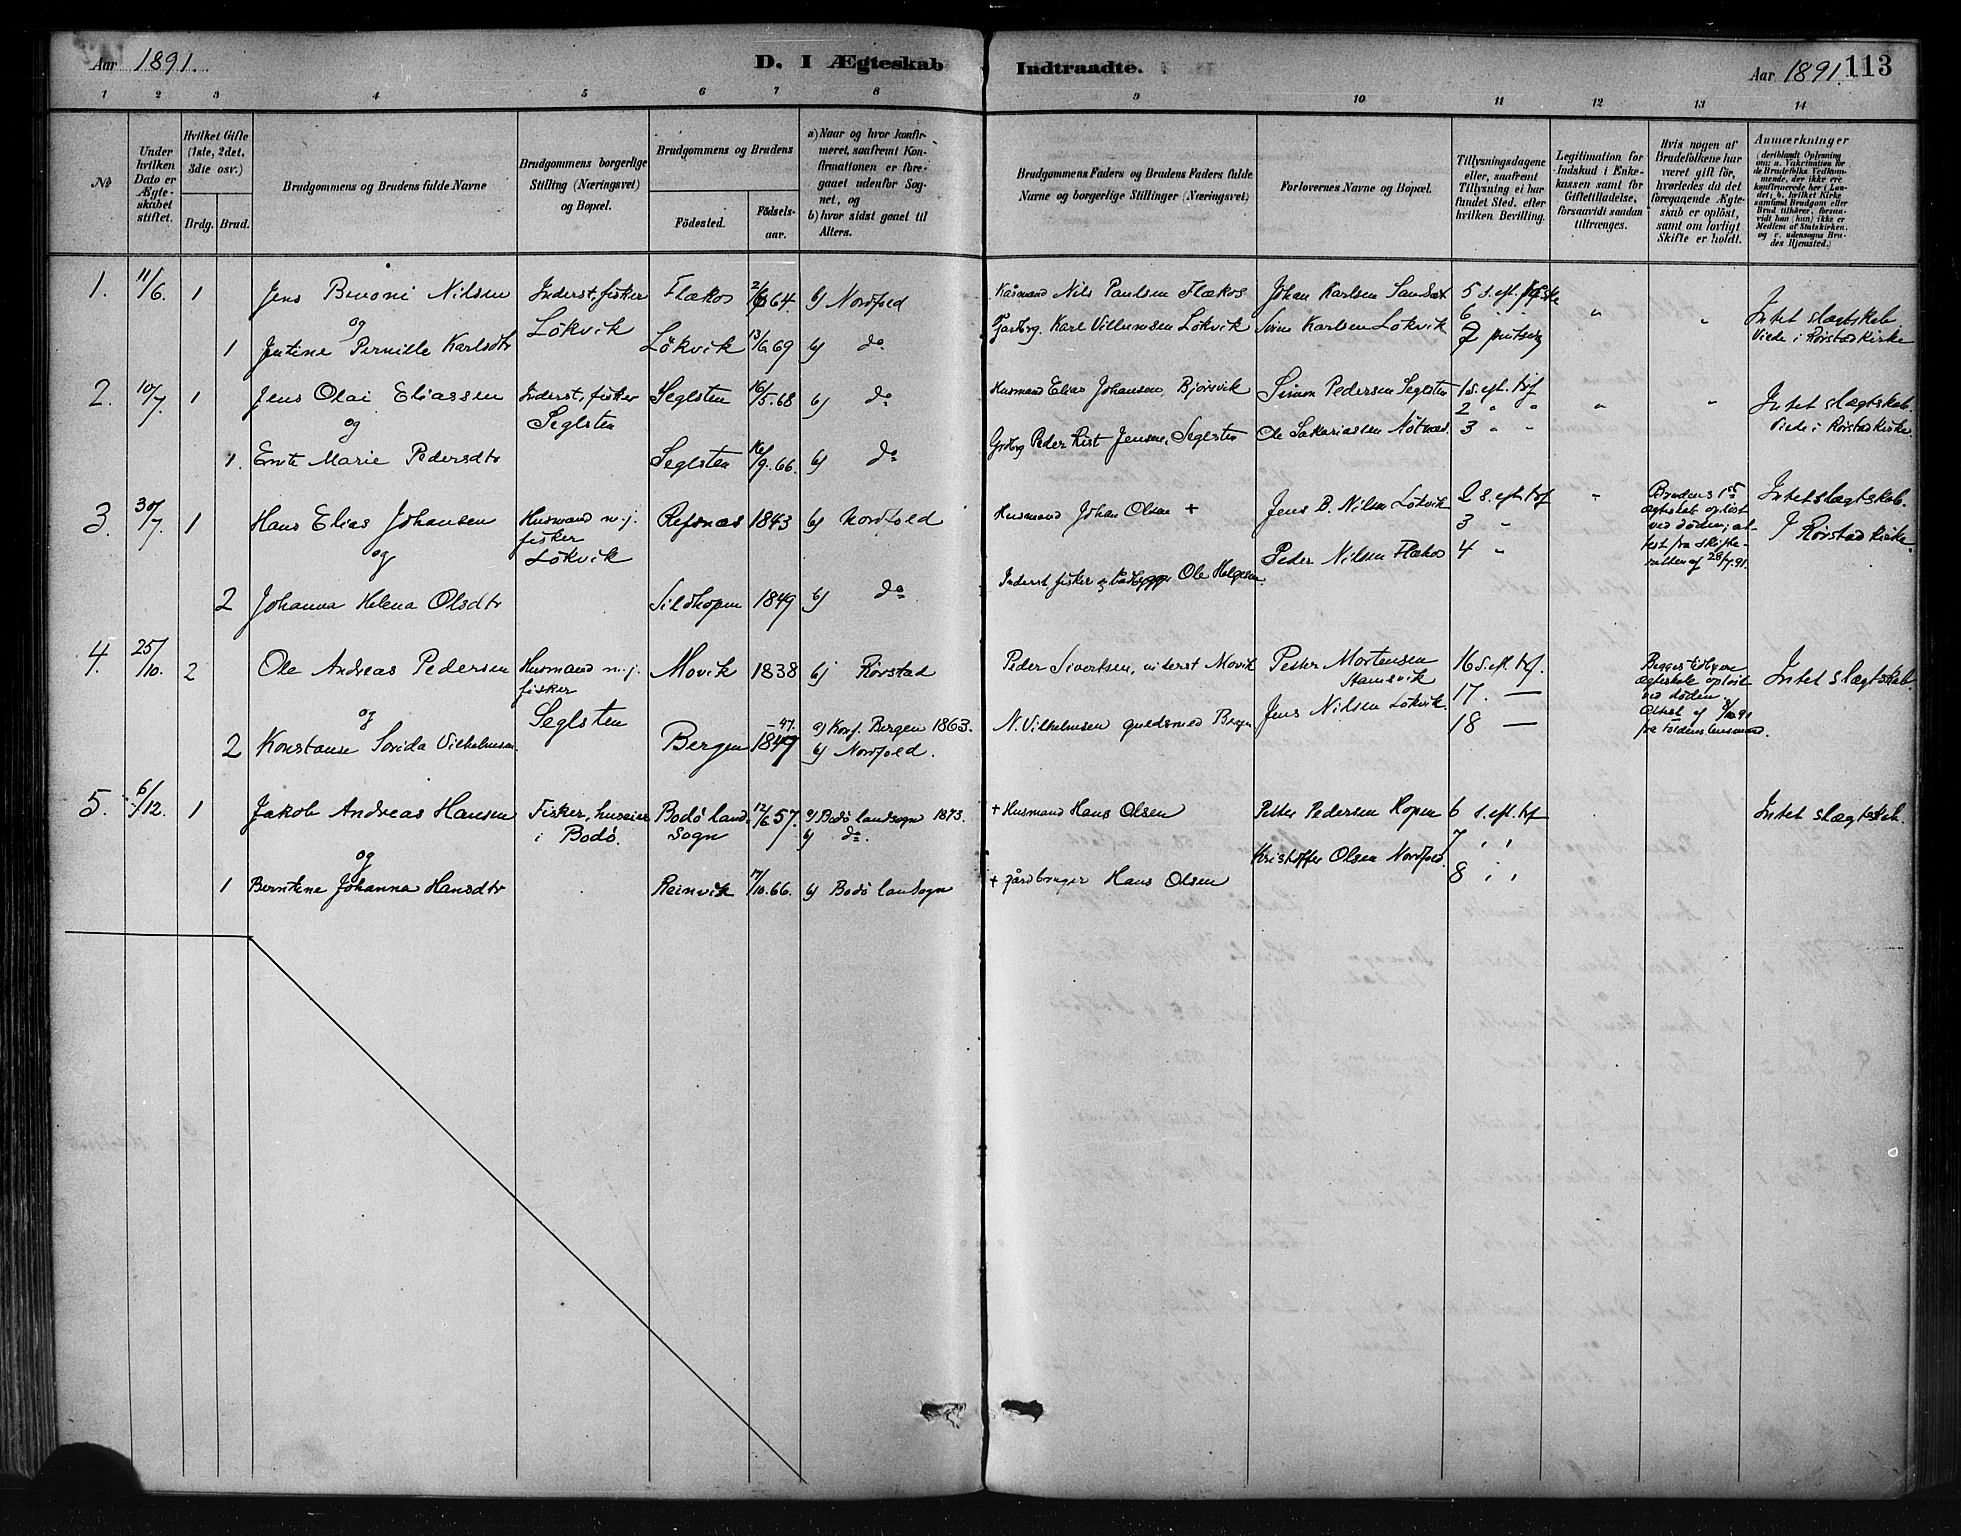 Aar 1891. D. I Ægteskab Indtraadte. Aar 1891. 113
1 2 3 4 5 6 7 8 9 10 11 12 13 14
No
Under hvilken Dato er Ægteskabet stiftet.
Hvilket Gifte (1ste, 2det, 3die osv.)
Brdg. Brud.
Brudgommens og Brudens fulde Navne
Brudgommens borgerlige Stilling (Næringsvei) og Bopæl.
Brudgommens og Brudens
Fødested. Fødselsaar.
a) Naar og hvor konfirmeret, saafremt Konfirmationen er foregaaet udenfor Sognet, og
b) hvor sidst gaaet til Alters.
Brudgommens Faders og Brudens Faders fulde Navne og borgerlige Stillinger (Næringsvei)
Forlovernes Navne og Bopæl.
Tillysningsdagene eller, saafremt Tillysning ei har fundet Sted, efter hvilken Bevilling.
Legitimation for Indskud i Enkekassen samt for Giftetilladelse, forsaavidt saadan tiltrænges.
Hvis nogen af Brudefolkene har været gift før, hvorledes da det foregaaende Ægteskab er opløst, samt om lovligt Skifte er holdt.
Anmærkninger
(deriblandt Oplysning om: a. Vakcination for de Brudefolks Vedkommende, der ikke ere konfirmerede her i Landet, b. hvilket Kirkesamfund Brudgom eller Brud tilhører, forsaavidt han (hun) ikke er Medlem af Statskirken, og c. udensogns Brudes Hjemsted.)
1. 11/6. 1 Jens Benoni Nilsen Inderst, fisker Flækos 64. b) Nordfold Nils Paulsen Flækos Johan Karlsen 5 s. eft.
og Løkvik 6 " "
1 Jentine Pernille Karlsdtr Løkvik 13/6 69 b) do Karl Villumsen Løkvik Karlsen Løkvik 7 Intet slægtskab Viede i Rørstad kirke
2. 10/7. 1 Jens Olai Eliassen Inderst, fisker Seglsten 16/5.68 b) do Husmand Elias Johansen, Bjørsvik Simon Pedersen Seglsten 1 s. eft. trf
og Seglsten 2 " " " " Intet slægtskab. Viede i Rørstad kirke.
1. Marie Pedersdtr Seglsten 16/9.66. b) do Peder Jensen, Seglsten Ole Sakariassen Nøtnæs 3 " "
3. 30/7. 1 Hans Elias Johansen Husmand m. j. fisker Refsnæs 1843 b) Nordfold Husmand Johan Olsen + Jens B. Nilsen Løkvik 2 s. eft. trf " Brudens 1ste ægteskab opløst ved døden; attest fra skifteretten af 28/7.91. Intet slægtskab.
og Løkvik Peder Nilsen Flækos 3 " 4 " I Rørstad kirke.
2 Johanna Helena Olsdtr Sildhopen 1849 b) do Inderst fisker Ole Helgesen
4. 25/10. 2 Ole Andreas Pedersen Husmand m. j. fisker Movik 1838 b) Rørstad Peder Sivertsen, Movik Petter Mortensen Stamsvik 16 s. eft. trf. Begges ægteskab opløst ved døden. Attest af 91 fra Foldens lensmand. Intet slægtskab.
og Seglsten Jens Nilsen Løkvik. 17. —
2 Konstanse Vilhelmsen. Bergen 1847 -47. a) Konf. Bergen 1863. b) Nordfold. N. Vilhelmsen guldsmed Bergen 18 —
5. 6/12. 1 Jakob Andreas Hansen Fisker, huseier i Bodø. Bodø landsogn 12/6 57. a) Bodø landsogn 1873. b) do. + Husmand Hans Olsen Petter Pedersen Hopen 6 s. eft. trf Intet slægtskab.
og Kristoffer Olsen Nordfold. 7 " "
1 Berntine Johanna Hansdtr Reinvik 17/10.66. b) Bodø landsogn + gårdbruger Hans Olsen 8 " "